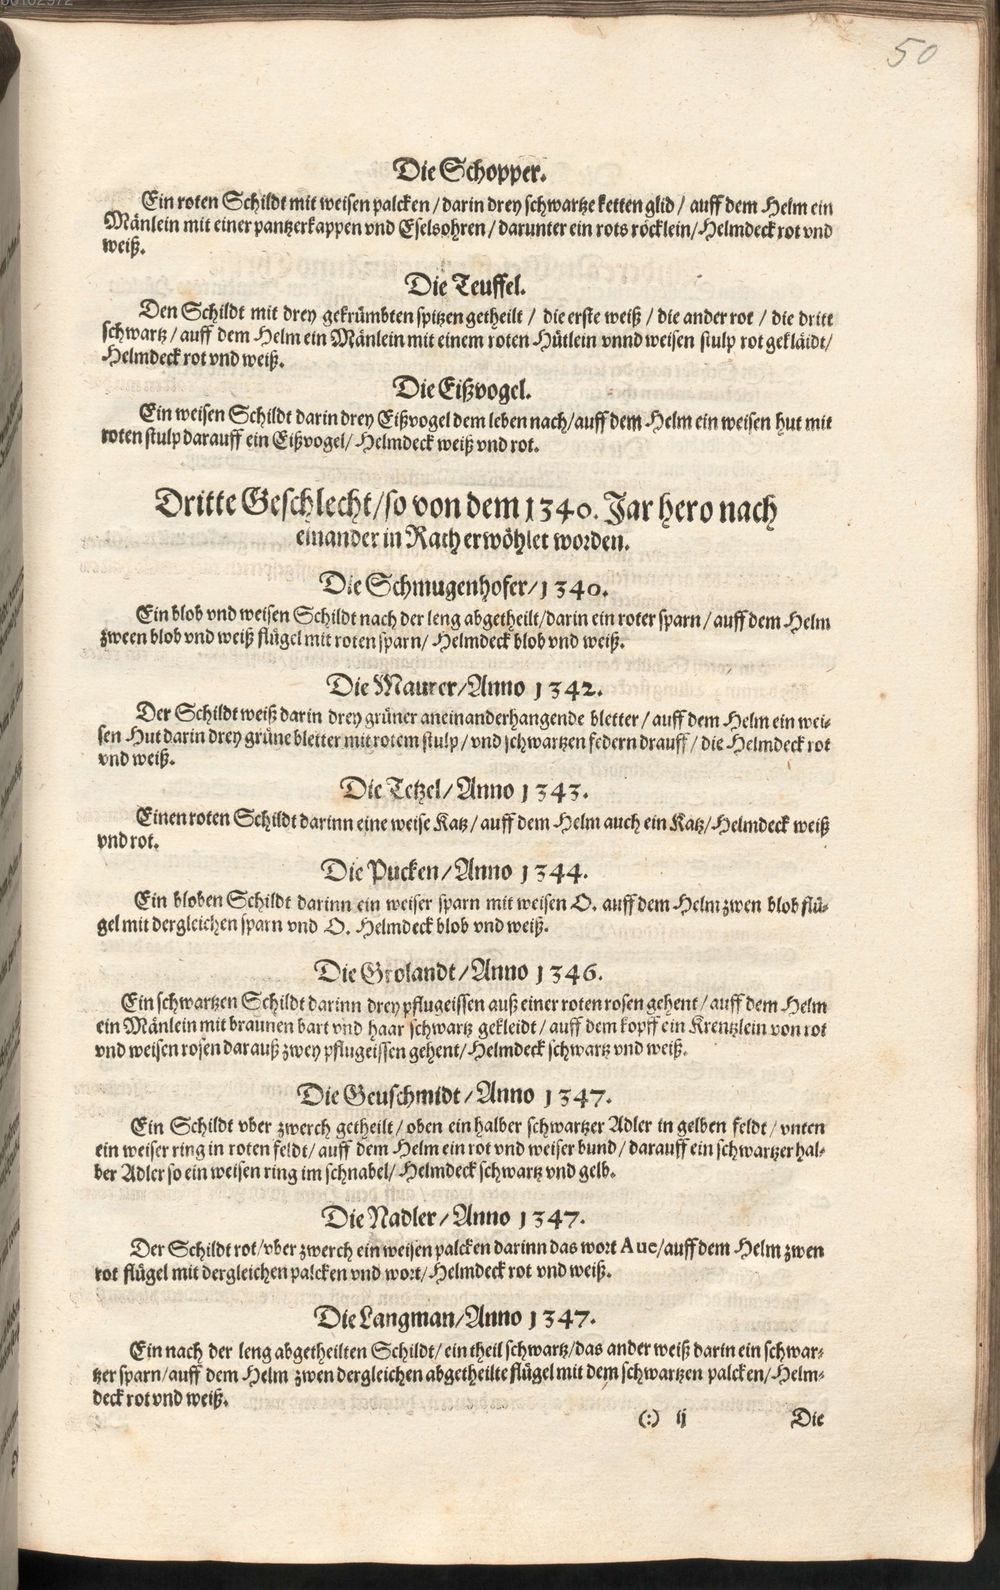 00102972
50
Die Schopper.
Ein roten Schildt mit weisen palcken / darin drey schwartze ketten glid / auff dem Helm ein
Mänlein mit einer pantzerkappen vnd Eselsohren / darunter ein rots röcklein / Helmdeck rot vnd
weiß.
Die Teuffel.
Den Schildt mit drey gekrümbten spitzen getheilt / die erste weiß / die ander rot / die dritt
schwartz / auff dem Helm ein Mänlein mit einem roten Hütlein vnnd weisen stulp rot gekläidt /
Helmdeck rot vnd weiß.
Die Eißvogel.
Ein weisen Schildt darin drey Eißvogel dem leben nach / auff dem Helm ein weisen hut mit
roten stulp darauff ein Eißvogel / Helmdeck weiß vnd rot.
Dritte Geschlecht / so von dem 1340. Jar hero nach
einander in Rath erwöhlet worden.
Die Schmugenhofer / 1340.
Ein blob vnd weisen Schildt nach der leng abgetheilt / darin ein roter sparn / auff dem Helm
zween blob vnd weiß flügel mit roten sparn / Helmdeck blob vnd weiß.
Die Maurer / Anno 1342.
Der Schildt weiß darin drey grüner aneinanderhangende bletter / auff dem Helm ein wei-
sen Hut darin drey grüne bletter mit rotem stulp / vnd schwartzen federn drauff / die Helmdeck rot
vnd weiß.
Die Tetzel / Anno 1343.
Einen roten Schildt darinn eine weise Katz / auff dem Helm auch ein Katz / Helmdeck weiß
vnd rot.
Die Pucken / Anno 1344.
Ein bloben Schildt darinn ein weiser sparn mit weisen O. auff dem Helm zwen blob flü-
gel mit dergleichen sparn vnd O. Helmdeck blob vnd weiß.
Die Grolandt / Anno 1346.
Ein schwartzen Schildt darinn drey pflugeissen auß einer roten rosen gehent / auff dem Helm
ein Mänlein mit braunen bart vnd haar schwartz gekleidt / auff dem kopff ein Krentzlein von rot
vnd weisen rosen darauß zwey pflugeissen gehent / Helmdeck schwartz vnd weiß.
Die Geuschmidt / Anno 1347.
Ein Schildt vber zwerch getheilt / oben ein halber schwartzer Adler in gelben feldt / vnten
ein weiser ring in roten feldt / auff dem Helm ein rot vnd weiser bund / darauff ein schwartzer hal-
ber Adler so ein weisen ring im schnabel / Helmdeck schwartz vnd gelb.
Die Nadler / Anno 1347.
Der Schildt rot / vber zwerch ein weisen palcken darinn das wort Aue / auff dem Helm zwen
rot flügel mit dergleichen palcken vnd wort / Helmdeck rot vnd weiß.
Die Langman / Anno 1347.
Ein nach der leng abgetheilten Schildt / ein theil schwartz / das ander weiß darin ein schwar-
tzer sparn / auff dem Helm zwen dergleichen abgetheilte flügel mit dem schwartzen palcken / Helm-
deck rot vnd weiß.
(:) ij Die